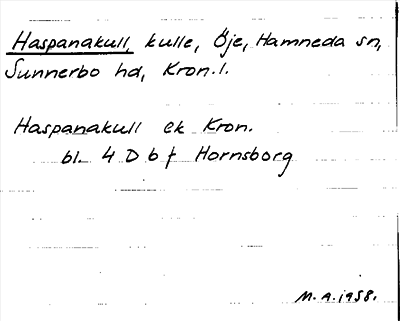 Haspanakull, kulle, Öje, Hamneda sn,
Sunnerbo hd, Kron. l.
Haspanakull ek Kron.
bl. 4 D b f Hornsborg
M. A. 1958.